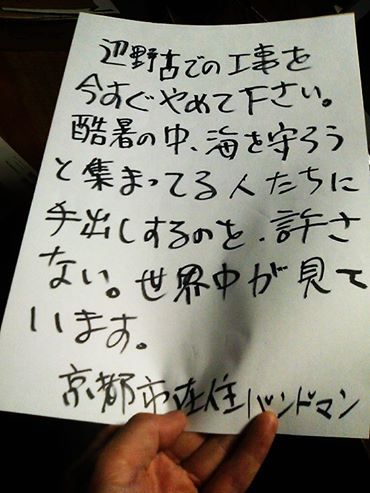 辺野古での工事を
今すぐやめて下さい。
酷暑の中、海を守ろう
と集まってる人たちに
手出しするのを、許さ
ない。世界中が見て
います。
京都市在住バンドマン